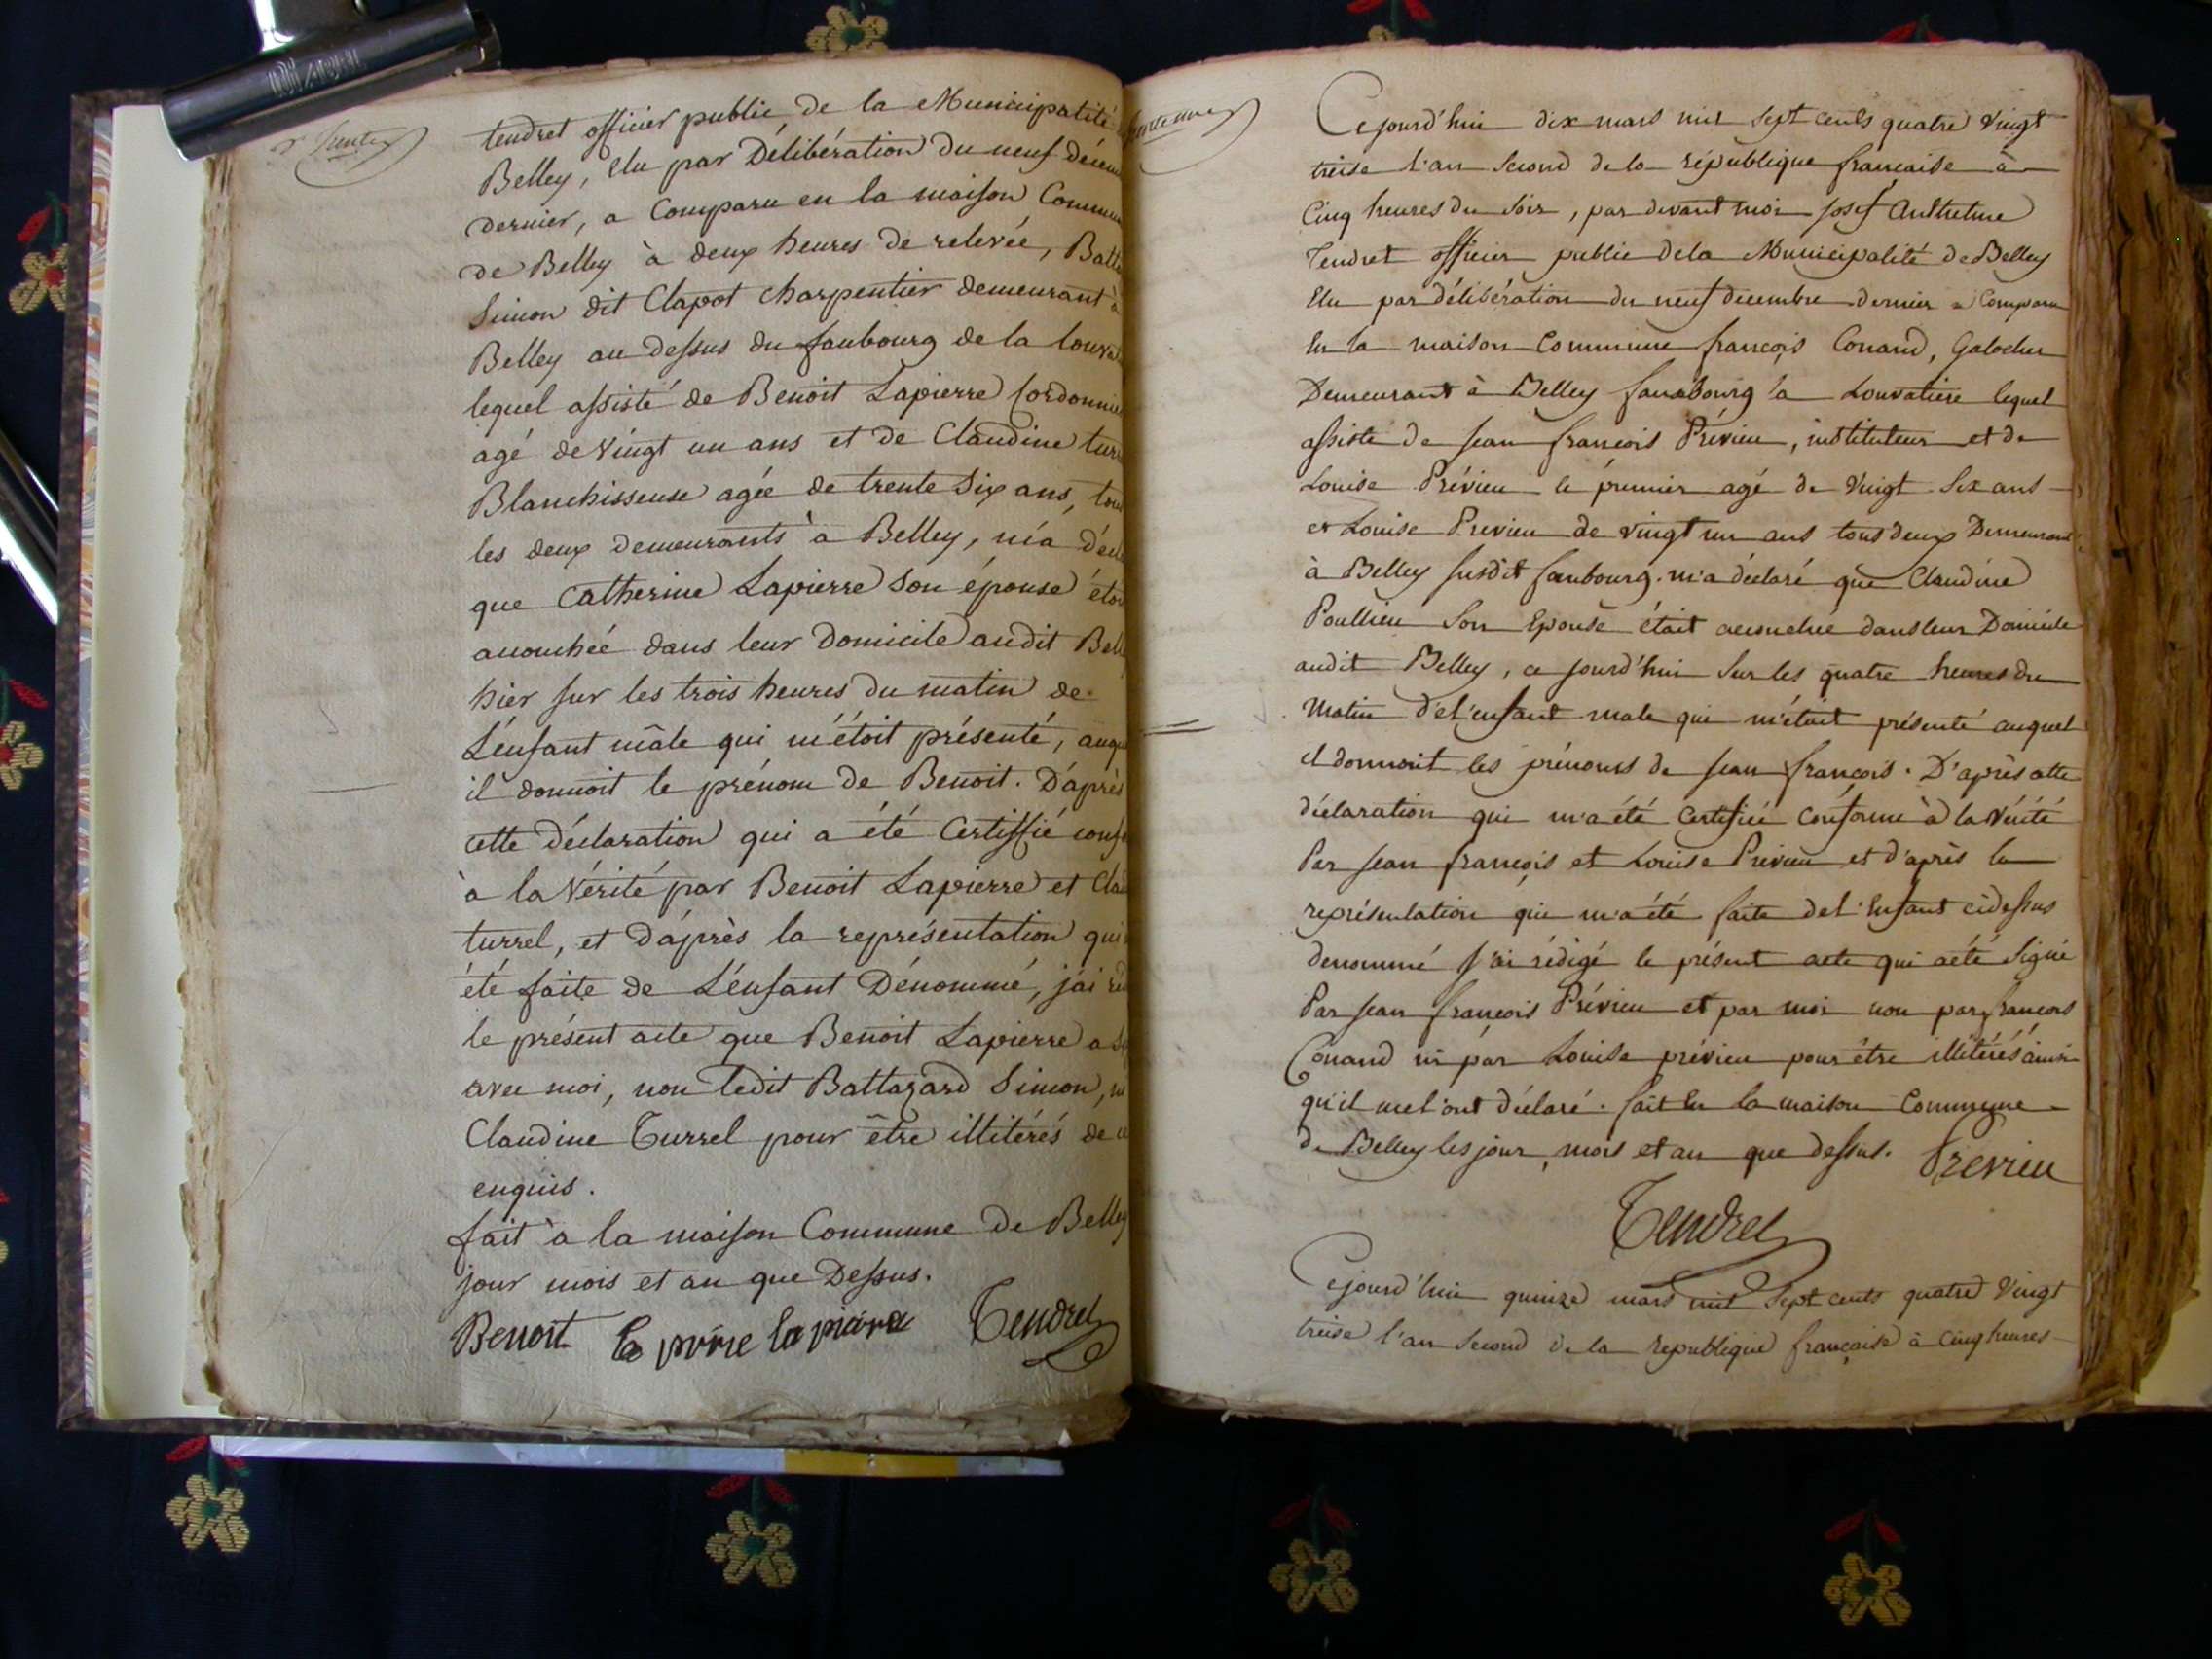 trente
tendret officier public de la Municipalité
Belley, elu par Délibération du neuf décem
dernier, a Comparu en la maison Commu
de Belley à deux heures de relevée, Balt
Simon dit Clapot charpentier demeurant à
Belley au dessus du faubourg de la louva
lequel assisté de Benoit Lapierre Cordonnie
agé de vingt un ans et de Claudine turr
Blanchisseuse agée de trente six ans, tou
les deux demeurants à Belley, m'a décl
que Catherine Lapierre son épouse étoi
accouchée dans leur domicile audit Bell
hier sur les trois heures du matin de
L'enfant mâle qui m'étoit présenté, auqu
il donnoit le prénom de Benoit. D'après
cette déclaration qui a été Certiffié conf
à la Vérité par Benoit Lapierre et Cla
turrel, et D'après la représentation qui
été faite de L'enfant Dénommé, j'ai réd
le présent acte que Benoit Lapierre a si
avec moi, non ledit Baltazard Simon, ni
Claudine Turrel pour être illitérés de
enquis.
fait à la maison Commune de Belley
jour mois et an que Dessus.
Benoit la piere Tendret
trente une
Cejourd'hui dix mars mil sept cents quatre vingt
treise l'an second de la république francaise à
Cinq heures du soir, par devant moi josef Anthelme
Tendret officier public de la Municipalité de Belley
Elu par délibération du neuf decembre dernier a Comparu
En la maison Commune françois Conand, Galocher
Demeurant à Belley fauxbourg la Louvatiere lequel
assisté de jean françois Prévieu, instituteur et de
Louise Prévieu le premier agé de vingt six ans
et Louise Prévieu de vingt un ans tous deux Demeurant
à Belley susdit faubourg. m'a déclaré que Claudine
Poullieu son Epouse était accouchée dans leur Domicile
audit Belley, ce jourd'hui sur les quatre heures du
matin de l'enfant male qui m'était présenté auquel
il donnoit les prénoms de jean françois. D'après cette
déclaration qui m'a été Certifiée conforme à la Vérité
Par jean françois et Louise Prévieu et d'après la
représentation qui m'a été faite de l'Enfant cidessus
denommé j'ai rédigé le présent acte qui a été signé
Par jean françois Prévieu et par moi non par françois
Conand ni par Louise prévieu pour être illitérés ainsi
qu'il me l'ont déclaré. fait En la maison Commune
de Belley les jour, mois et an que dessus. Previeu
Tendret
Cejourd'hui quinze mars mil sept cents quatre vingt
treise l'an second de la republique française à cinq heures